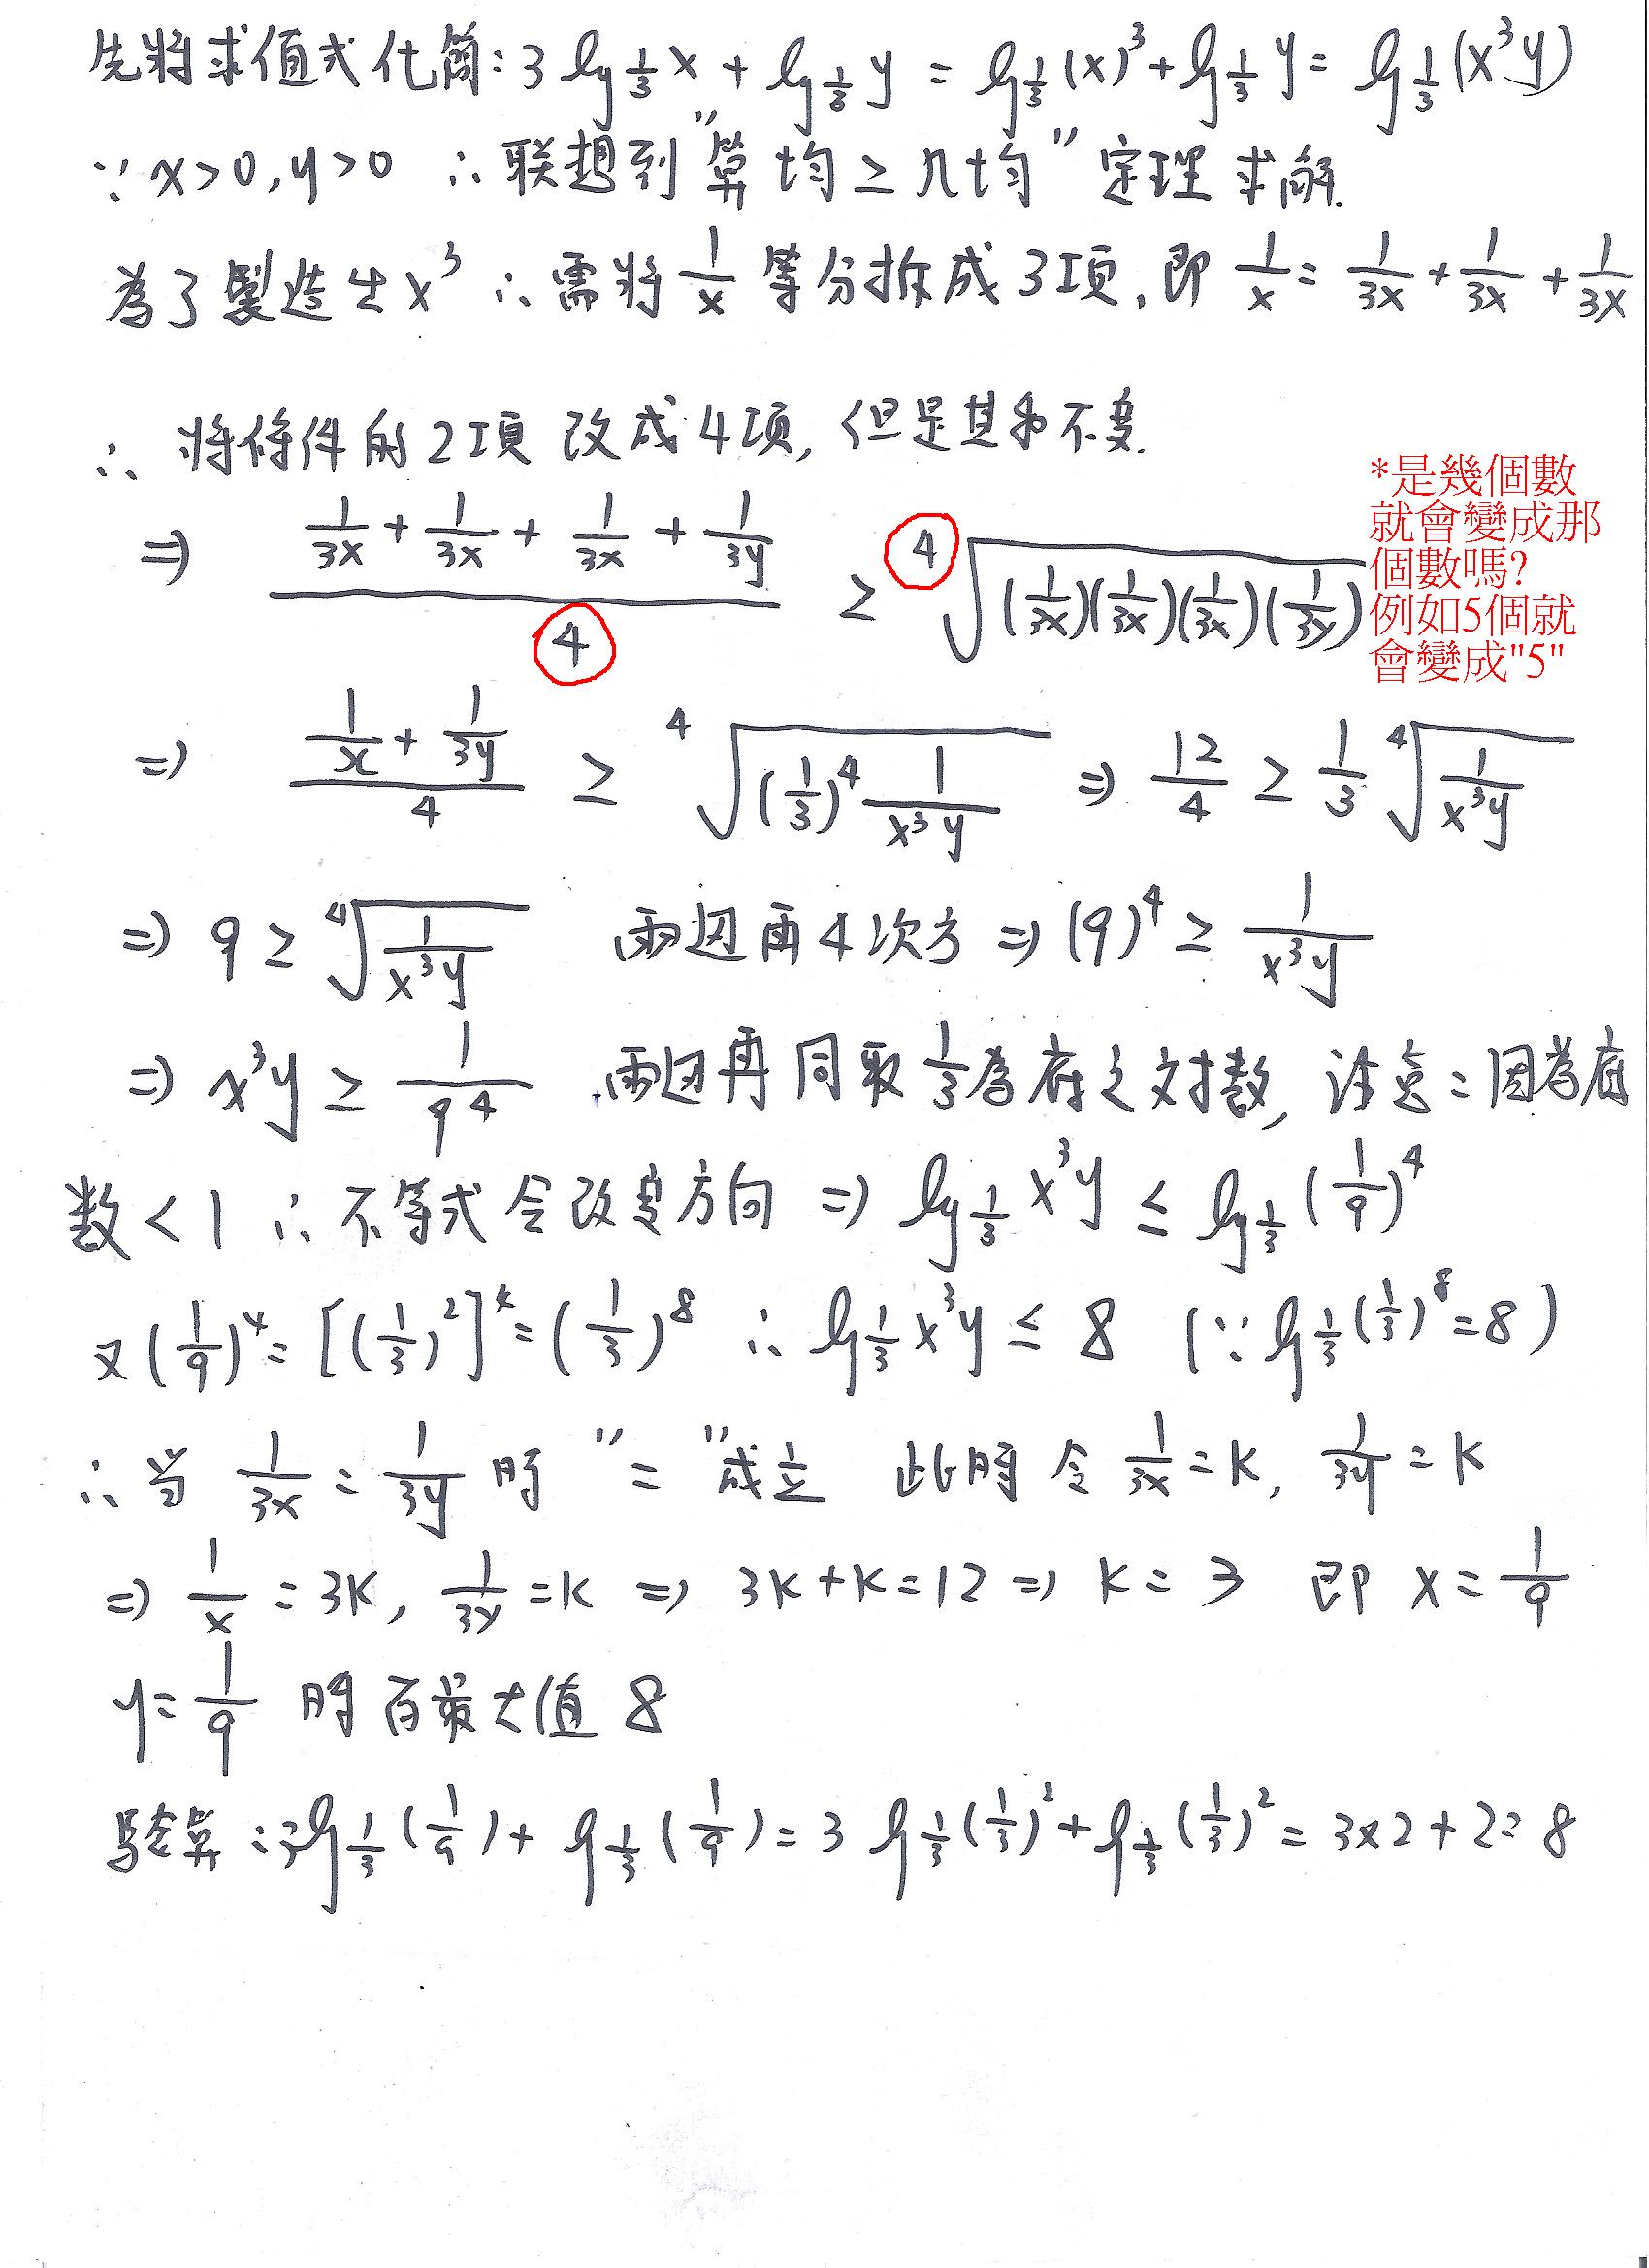 先將求值式化簡:3 log_{1/3} x + log_{1/3} y = log_{1/3} (x)^3 + log_{1/3} y = log_{1/3} (x^3 y)
∵ x>0, y>0 ∴ 联想到 "算均 ≥ 几均" 定理求解.
為了製造出 x^3 ∴ 需將 1/x 等分拆成 3 項, 即 1/x = 1/3x + 1/3x + 1/3x
∴ 將條件的 2 項 改成 4 項, 但是其和不变.
⇒ (1/3x + 1/3x + 1/3x + 1/3y) / 4 ≥ ⁴√((1/3x)(1/3x)(1/3x)(1/3y))
*是幾個數
就會變成那
個數嗎?
例如5個就
會變成"5"
⇒ (1/x + 1/3y) / 4 ≥ ⁴√((1/3)^4 1/(x^3 y)) ⇒ 12/4 ≥ 1/3 ⁴√(1/(x^3 y))
⇒ 9 ≥ ⁴√(1/(x^3 y)) 兩边再 4 次方 ⇒ (9)^4 ≥ 1/(x^3 y)
⇒ x^3 y ≥ 1/9^4 兩边再同取 1/3 為底之对數, 注意: 因為底
数 < 1 ∴ 不等式会改变方向 ⇒ log_{1/3} x^3 y ≤ log_{1/3} (1/9)^4
又 (1/9)^4 = [(1/3)^2]^4 = (1/3)^8 ∴ log_{1/3} x^3 y ≤ 8 (∵ log_{1/3} (1/3)^8 = 8)
∴ 当 1/3x = 1/3y 时 "=" 成立 此時 令 1/3x = K, 1/3y = K
⇒ 1/x = 3K, 1/3y = K ⇒ 3K + K = 12 ⇒ K = 3 即 x = 1/9
y = 1/9 時 有最大值 8
驗算: 3 log_{1/3} (1/9) + log_{1/3} (1/9) = 3 log_{1/3} (1/3)^2 + log_{1/3} (1/3)^2 = 3×2+2=8